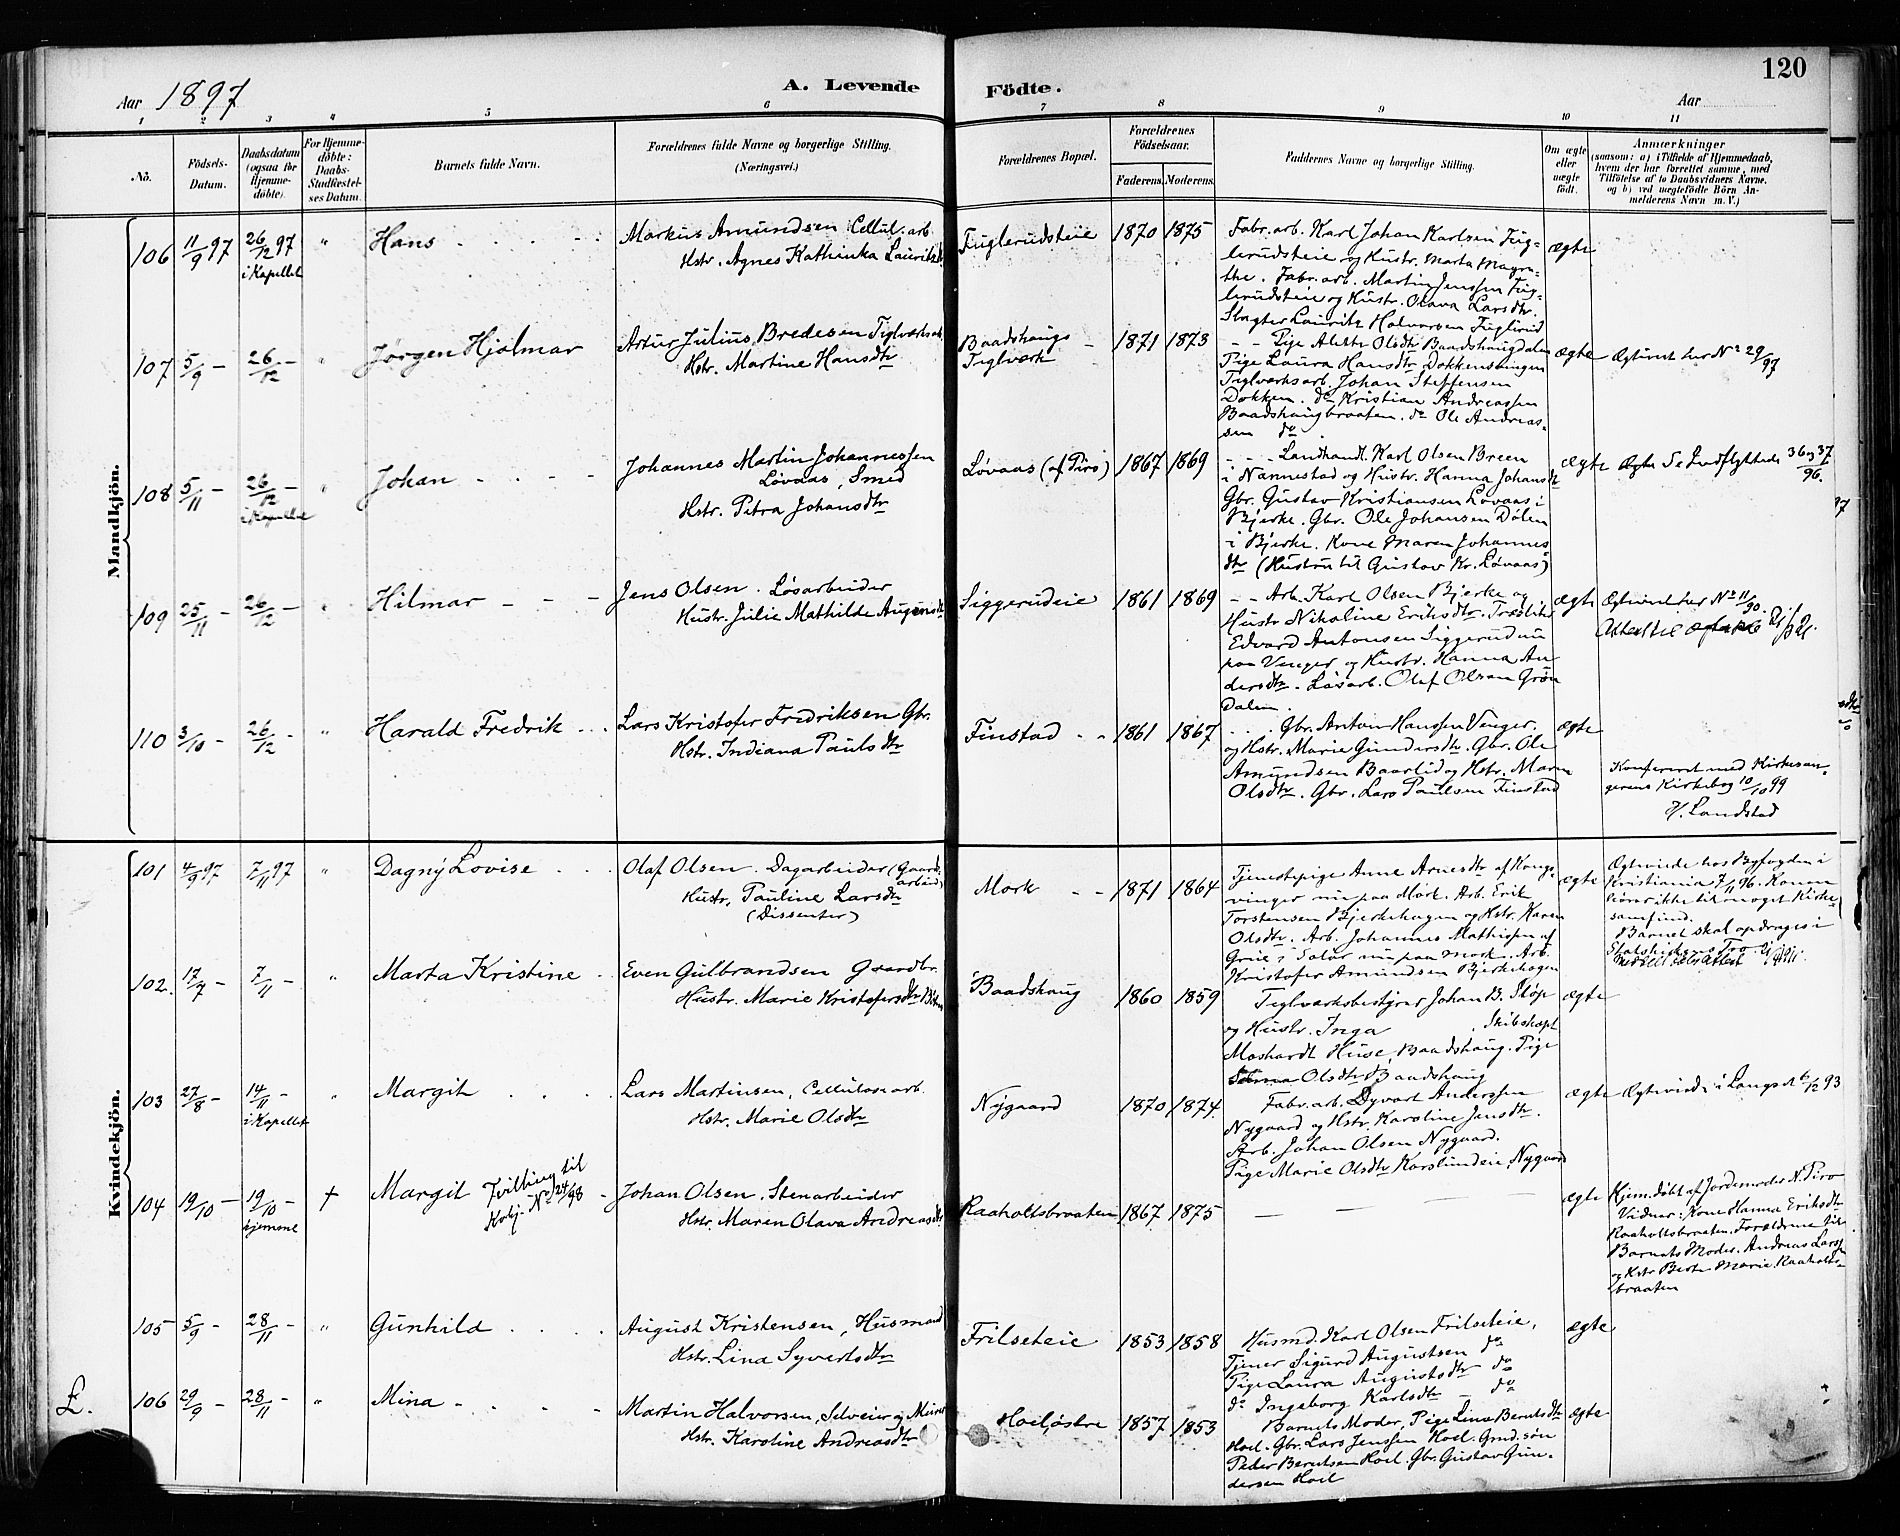 120
Aar 1897
A. Levende Födte.
Aar
1 2 3 4 5 6 7 8 9 10 11
No.
Födsels-Datum.
Daabsdatum (ogsaa for Hjemme-döbte).
For Hjemme-döbte: Daabs-Stadfæstel-ses Datum.
Barnets fulde Navn.
Forældrenes fulde Navne og borgerlige Stilling. (Næringsvei.)
Forældrenes Bopæl.
Forældrenes Födselsaar.
Faderens. Moderens.
Faddernes Navne og borgerlige Stilling.
Om ægte eller uægte födt.
Anmærkninger
(saasom: a) i Tilfælde af Hjemmedaab,
hvem der har forrettet samme, med
Tilföielse af to Daabsvidners Navne.
og b) ved uægtefödte Börn An-
melderens Navn m. V.)
Mandkjön.
106 11/9 97 26/12 97 i Kapellet " Hans
Markus Amundsen Cellul. arb.
Hstr. Agnes Kathinka Lauritsdtr
Fuglerudsteie 1870 1875
Fabr. arb. Karl Johan Karlsen Fug-
lerudsteie og Hustr. Marta Magre-
the. Fabr. arb. Martin Jenssen Fug-
lerudsteie og Hustr. Olava Larsdtr.
Slagter Lauritz Halvorsen Fuglerud
ægte
107 5/9 - 26/12 - " Jørgen Hjalmar
Artur Julius Bredesen Tiglværksarb
Hstr. Martine Hansdtr
Baadshaugs Tiglværk 1871 1873
- - Pige Olsdtr Baadshaugdalen
Pige Laura Hansdtr Dokkensvingen
Tiglværksarb. Johan Steffensen
Dokken. do Kristian Andreassen
Baadshaugbraaten. do Ole Andreas-
sen do.
ægte
Ægteviet her No 29/97
108 5/11 26/12 - i Kapellet " Johan
Johannes Martin Johannessen
Løvaas, Smed
Hstr. Petra Johansdtr
Løvaas (af Piro) 1867 1869
- - - Landhandl. Karl Olsen Breen
i Nannestad og Hustr. Hanna Johansdtr
Gbr. Gustav Kristiansen Løvaas i
Bjerke. Gbr. Ole Johansen Dølen
i Bjerke. Kone Maren Johannes
dtr (Hustru til Gustav Kr. Løvaas)
ægte
Se Indflyttede 36 og 37/96.
109 25/11 - 26/12 - " Hilmar
Jens Olsen. Løsarbeider
Hustr. Julie Mathilde
Siggerudeie 1861 1869
- - Arb. Karl Olsen Bjerke og
Hustr Nikoline Eriksdtr.
Edvard Antonsen Siggerud nu
paa Venger og Hustr. Hanna An
dersdtr. Løsarb. Olaf Olsen Grøn
Dalen.
ægte
Ægteviet her No 11/90.
110 3/10 - 26/12 - " Harald Fredrik
Lars Kristofer Fredriksen Gbr.
Hstr. Indiana Paulsdtr
Finstad 1861 1867
. . . Gbr. Anton Hanssen Venger,
og Hstr. Marie Gundersdtr. Gbr. Ole
Amundsen Baarlid og Hstr. Maren
Olsdtr. Gbr. Lars Paulsen Finstad
ægte
Konfereret med Kirkesan-
gerens Kirkebog 10/10 99
Landstad
Kvindekjön.
101 4/9 97 7/11 97 " Dagny Lovise
Olaf Olsen. Dagarbeider (Gaards
arbeid)
Hustr. Pauline Larsdtr
(Dissenter)
Mork 1871 1864
Tjenestepige Anne Arnesdtr af Kongs-
vinger nu paa Mork. Arb. Erik
Torstensen Bjerkehagen og Hstr. Karen
Olsdtr. Arb. Johannes Mathissen af
Grue i Solør nu paa Mork. Arb.
Kristofer Amundsen Bjerkehagen
ægte
Ægteviede hos Byfogden i
Kristiania 7/11 96. Konen
hører ikke til noget Kirke-
samfund.
Barnet skal opdrages i
Statskirkens Tro
102. 17/7 7/11 - " Marta Kristine
Even Gulbrandsen Gaardbr.
Hustr. Marie Kristofersdtr
Baadshaug 1860 1859
Teglværksbestyrer Johan B. Støp
og Hustr. Inga . Skibskapt
Huse, Baadshaug. Pige
Olsdtr Baadshaug
ægte
103 27/8 - 14/11 - i Kapellet " Margit
Lars Martinsen, Cellulosearb.
Hstr. Marie Olsdtr
Nygaard 1870 1874
Fabr. arb. Dyvart Anderssen
Nygaard og Hstr. Karoline Jensdtr.
Arb. Johan Olsen Nygaard.
Pige Marie Olsdtr Karslundeie, Nygaard
ægte
Ægteviede i Langset 6/12 93
104 19/10 - 19/10 - hjemme † Margit Tvilling til No 24/98
Johan Olsen. Stenarbeider
Hstr. Maren Olava Andreasdtr
Raaholtsbraaten 1867 1875
— — —
ægte
Hjem. døbt af Jordemoder N. Piro
Vidner: Kone Hanna Eriksdtr
Raaholtsbraaten. Forældrene til
Barnets Moder. Andreas Larss
og Hstr Berte Marie Raaholts-
braaten
105 5/9 - 28/11 - " Gunhild
August Kristensen, Husmand
Hstr. Lina Syvertsdtr
Frilseteie 1853 1858
Husmd. Karl Olsen Frilseteie,
Tjener Sigurd Augustsen do
Pige Laura Augustsdtr do
do Ingeborg Karlsdtr - do
ægte
£.
106 29/9 - 28/11 - " Mina
Martin Halvorsen, Selveier og Murer
Hstr. Karoline Andreasdtr
Hoel, østre 1857 1853
Barnets Moder, Pige Lina Berntsdtr
Hoel. Gbr. Lars Jenssen Hoel. Grnd. søn
Peder Berntsen Hoel. Gbr. Gustav Gun-
dersen Hoel
ægte